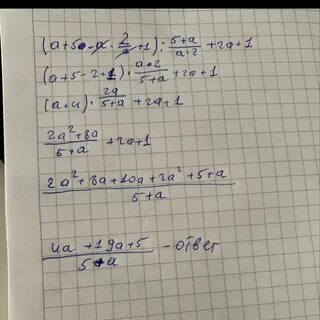 (a+50-a·2/a+1):5+a/a·2+2a+1
(a+5-2+1)·a·2/5+a+2a+1
(a·4)·2a/5+a+2a+1
2a²+8a/5+a+2a+1
2a²+8a+10a+2a²+5+a/5+a
4a+19a+5/5+a - ответ